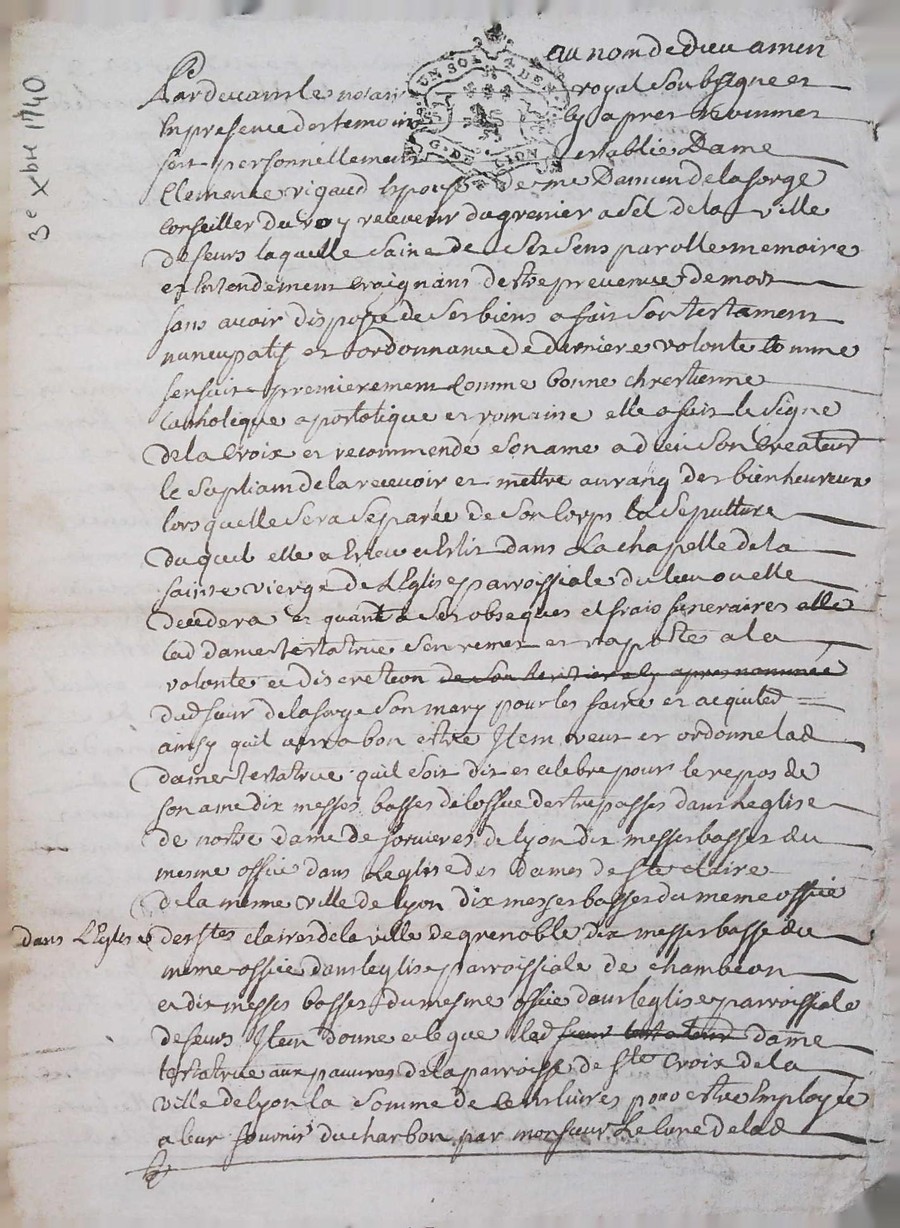 3e Xbre 1740
au nom de dieu amen
Pardevant le notaire royal soubsigné et
en presence des temoins cy apres nommes
fut personnellement establie Dame
Clemence rigaud epouse de me Damien delaforge
conseiller du roy receveur du grenier a sel de la ville
de feurs laquelle saine de ses sens parolle memoire
et entendement craignant destre prevenue de mort
sans avoir disposé de ses biens a fait son testament
nuncupatif et ordonnance de derniere volonté comme
sensuit premierement comme bonne chrestienne
catholique apostolique et romaine elle a fait le signe
de la croix et recommende son ame a dieu son createur
le supliam de la recevoir et mettre au rang des bienheureux
lors quelle sera separée de son corps la sepulture
duquel elle a eleu et elit dans la chapelle de la
sainte vierge de l'Eglise parroissiale du lieu ou elle
decedera et quant a ses obseques et frais funeraires elle
lad dame testatrice s'en remet et raporte a la
volonté et discretion de son heritier cy apres nommée
dud sieur delaforge son mary pour les faire et acquiter
ainsy quil verra bon estre Item veut et ordonne lad
dame testatrice quil soit dit et celebre pour le repos de
son ame dix messes basses de loffice des trepasses dans leglise
de notre dame de forvieres de lyon dix messes basses du
mesme office dans leglise des dames de ste claire
de la meme ville de lyon dix messes basses du meme office
dans l'Eglise des stes claires de la ville de grenoble dix messes basse du
meme office dans leglise parroissiale de chambeon
et dix messes basses du mesme office dans leglise parroissiale
de feurs Item donne et legue lad sieur testateur dame
testatrice aux pauvres de la parroisse de ste Croix de la
ville de lyon la somme de cent livres pour estre employée
a leur fournir du charbon par monsieur le curé de lad
UN SOL 4 DEN
G. DE LION